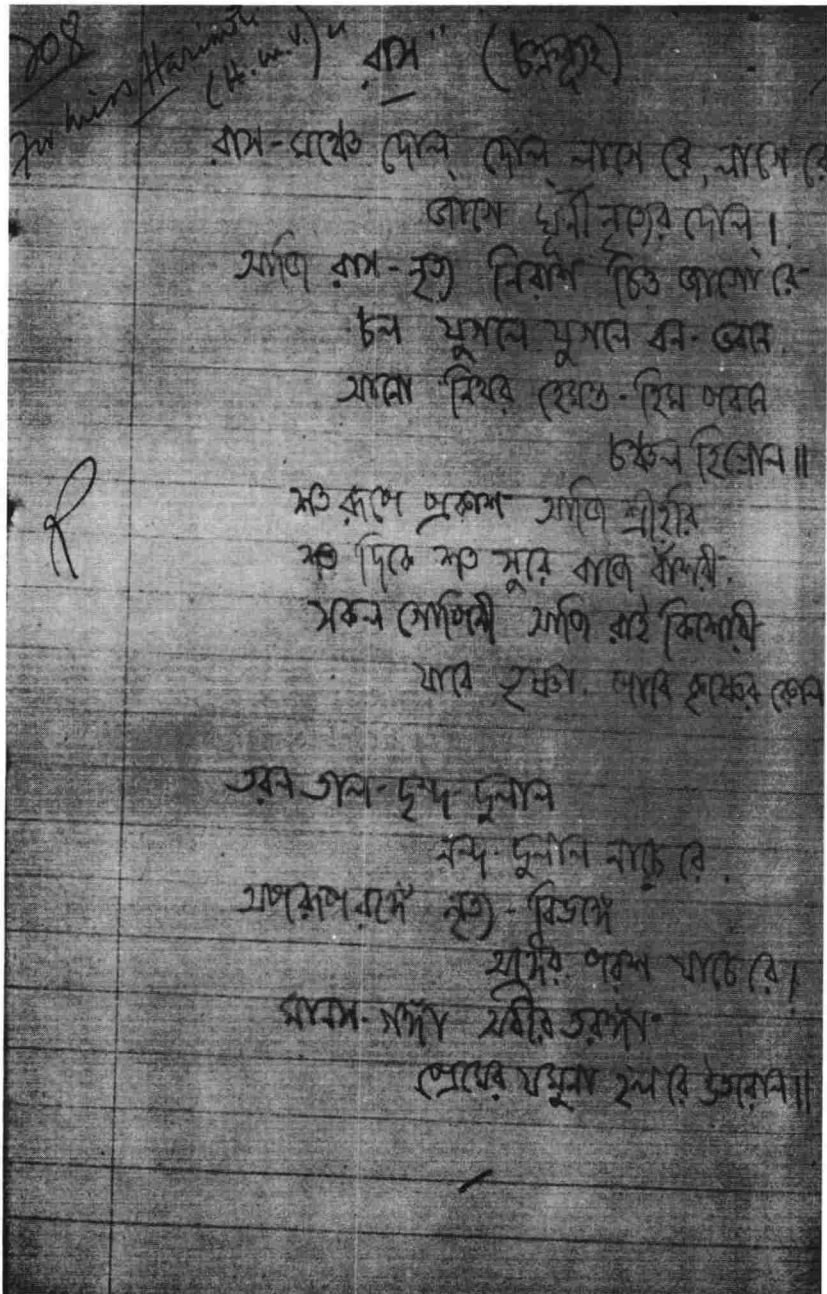 ২০৪
For Miss Harimati
(H.M.V.)
"রাস" (চন্দ্রব্যূহ)
রাস-মঞ্চে দোল্ দোল্ লাগে রে, লাগে রে
জাগে ঘূর্ণী নৃত্যের দোল্।
আজি রাস-নৃত্য নিরাশ চিত্ত জাগো রে
চল যুগলে যুগলে বন-ভবনে
আনো নিথর হেমন্ত-হিম পবনে
চঞ্চল হিল্লোল॥
শত রূপে প্রকাশ আজি শ্রীহরি
শত দিকে শত সুরে বাজে বাঁশরী
সকল গোপিনী আজি রাই কিশোরী
যাবে তৃষ্ণা, পাবি কৃষ্ণের কোল
তরল তাল-ছন্দ-দুলাল
নন্দ-দুলাল নাচে রে
অপরূপ রঙ্গে নৃত্য-বিভঙ্গে
অঙ্গের পরশ যাচে রে।
মানস-গঙ্গা অধীর তরঙ্গা
প্রেমের যমুনা হল রে উতরোল॥